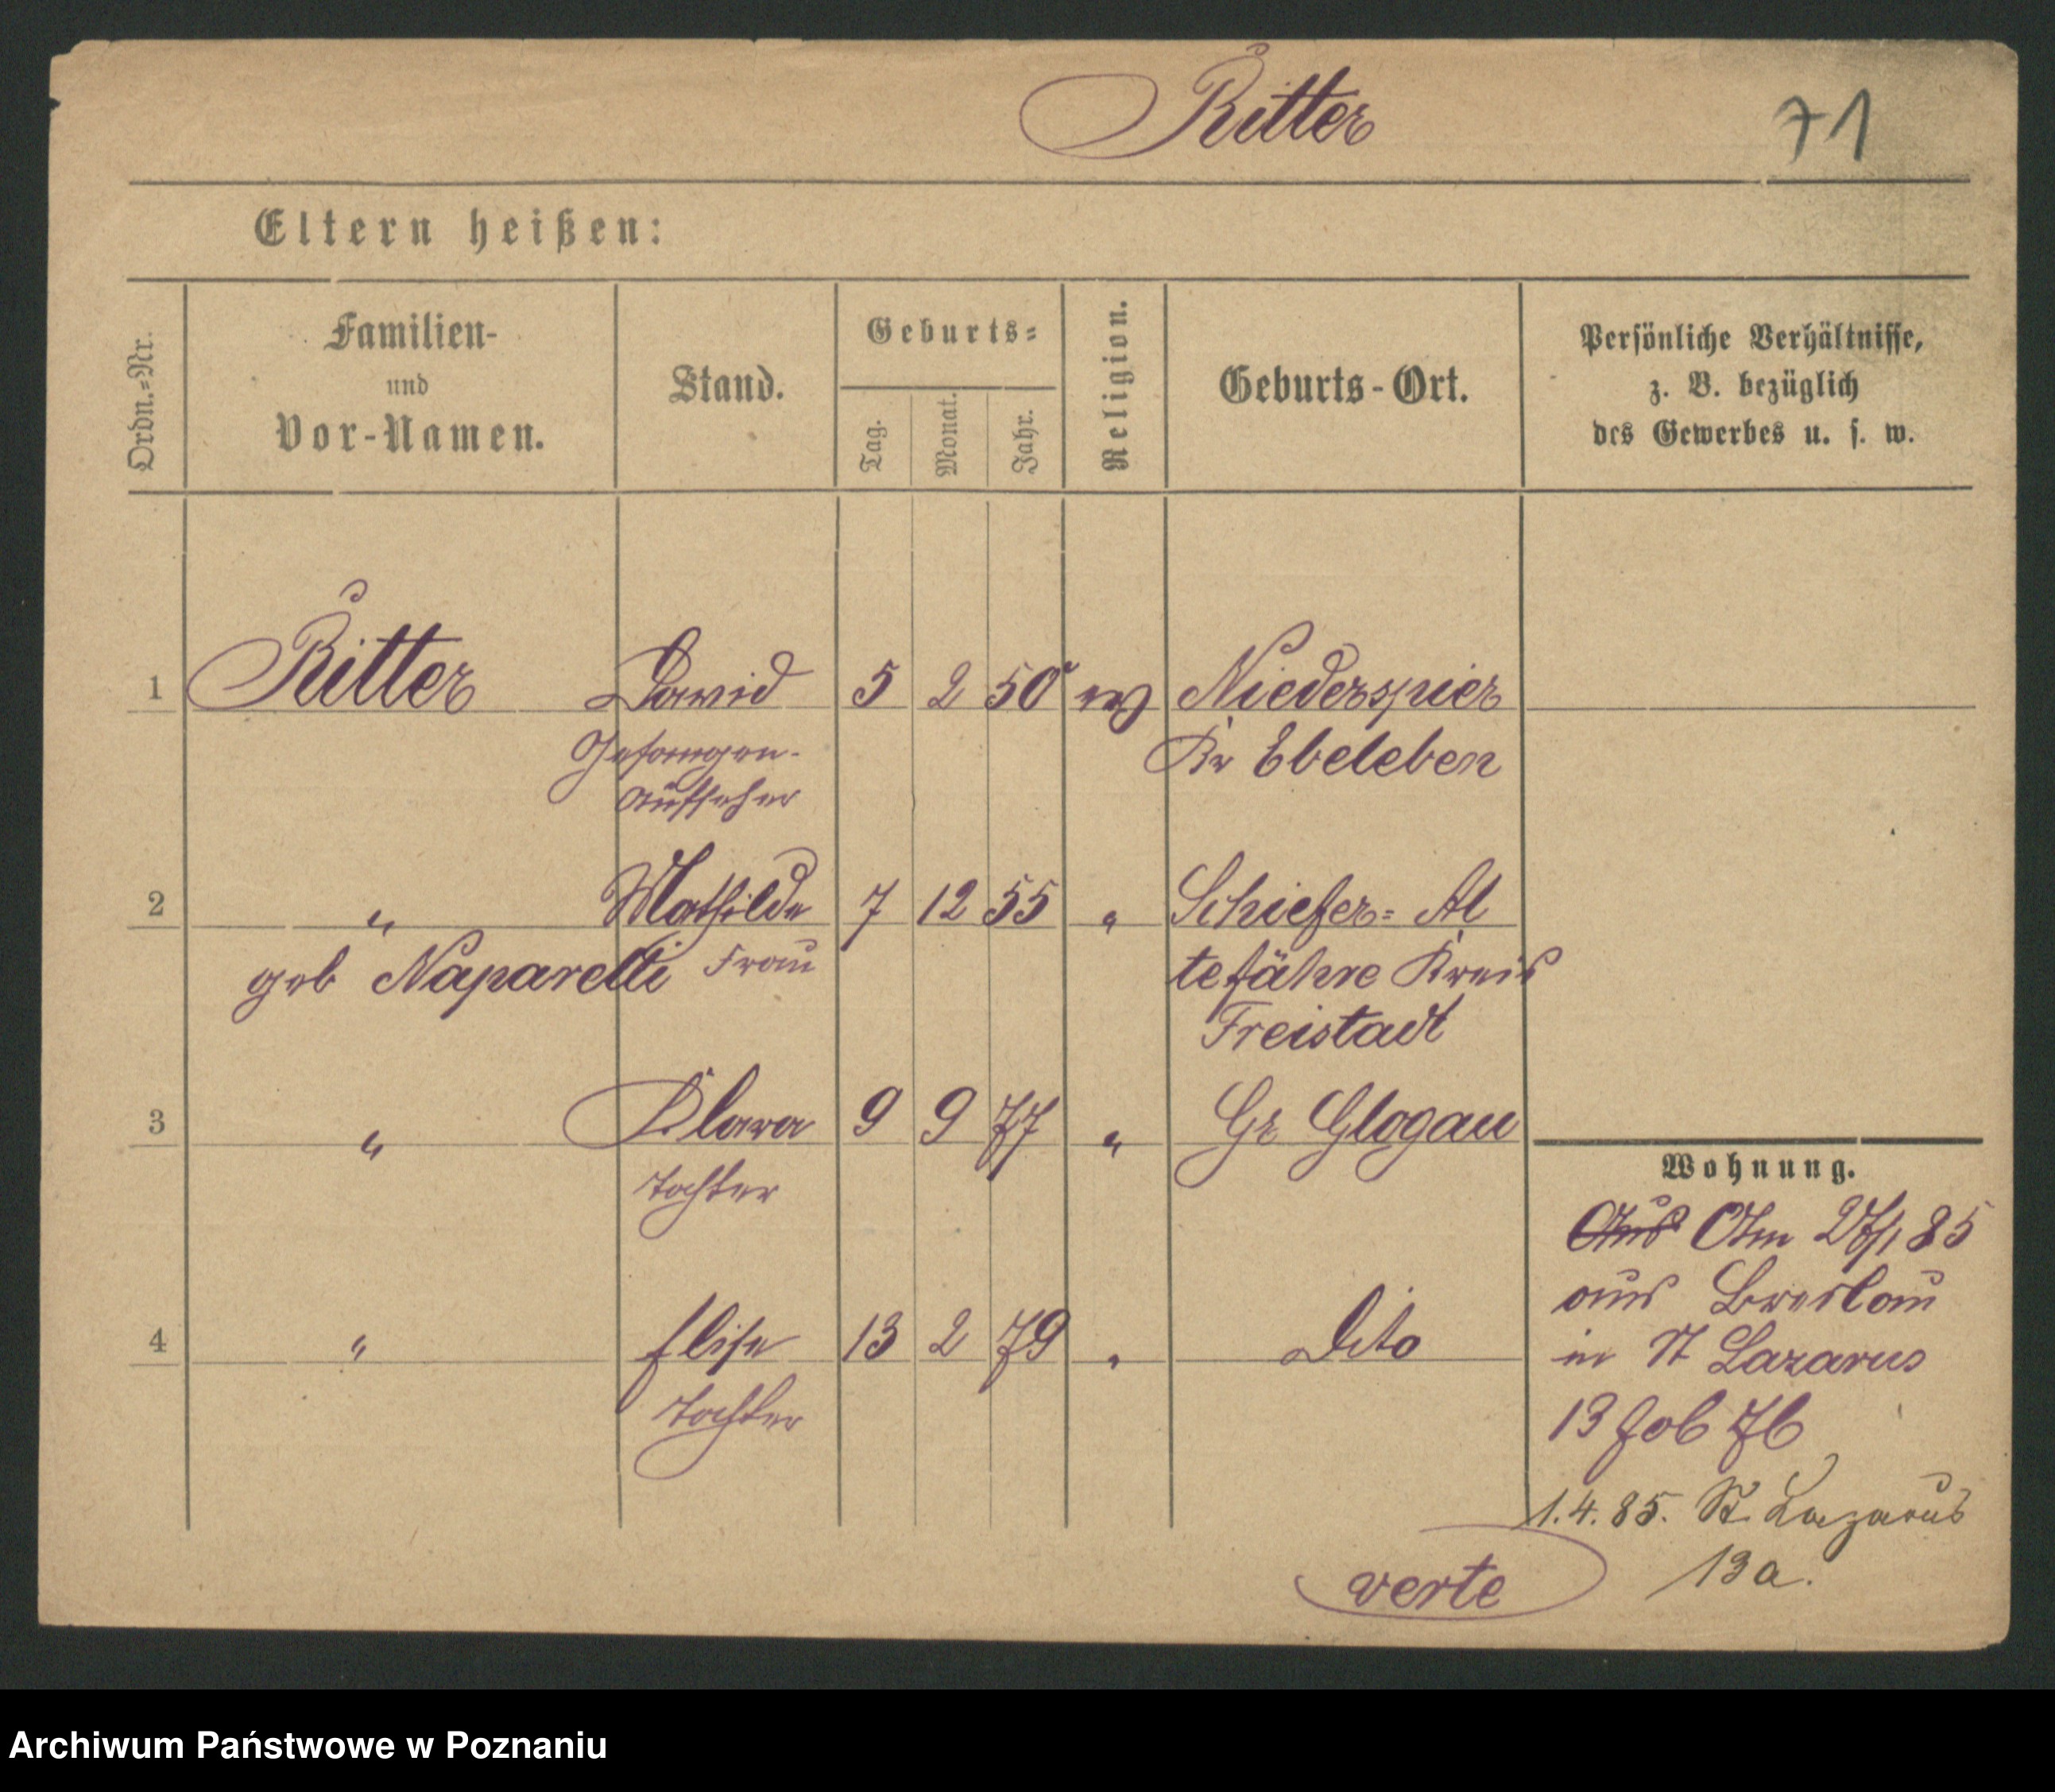 Ritter
71
Eltern heißen:
Ordn.=Nr.
Familien-
und
Vor-Namen.
Stand.
Geburts=
Tag.
Monat.
Jahr.
Religion.
Geburts-Ort.
Persönliche Verhältnisse,
z. B. bezüglich
des Gewerbes u. s. w.
1 Ritter David 5 2 50 ev Niederspier
Gefangen-
Aufseher
Kr Ebeleben
2 " Mathilde 7 12 55 " Schiefer= Al
geb Naparelli Frau
tefähre Kreis
Freistadt
3 " Klara 9 9 77 " Gr Glogau
Tochter
4 " Elise 13 2 79 " Dito
Tochter
Wohnung.
Aus Am 85
aus Breslau
in St Lazarus
13
1.4.85. St. Lazarus
13a.
verte
Archiwum Państwowe w Poznaniu